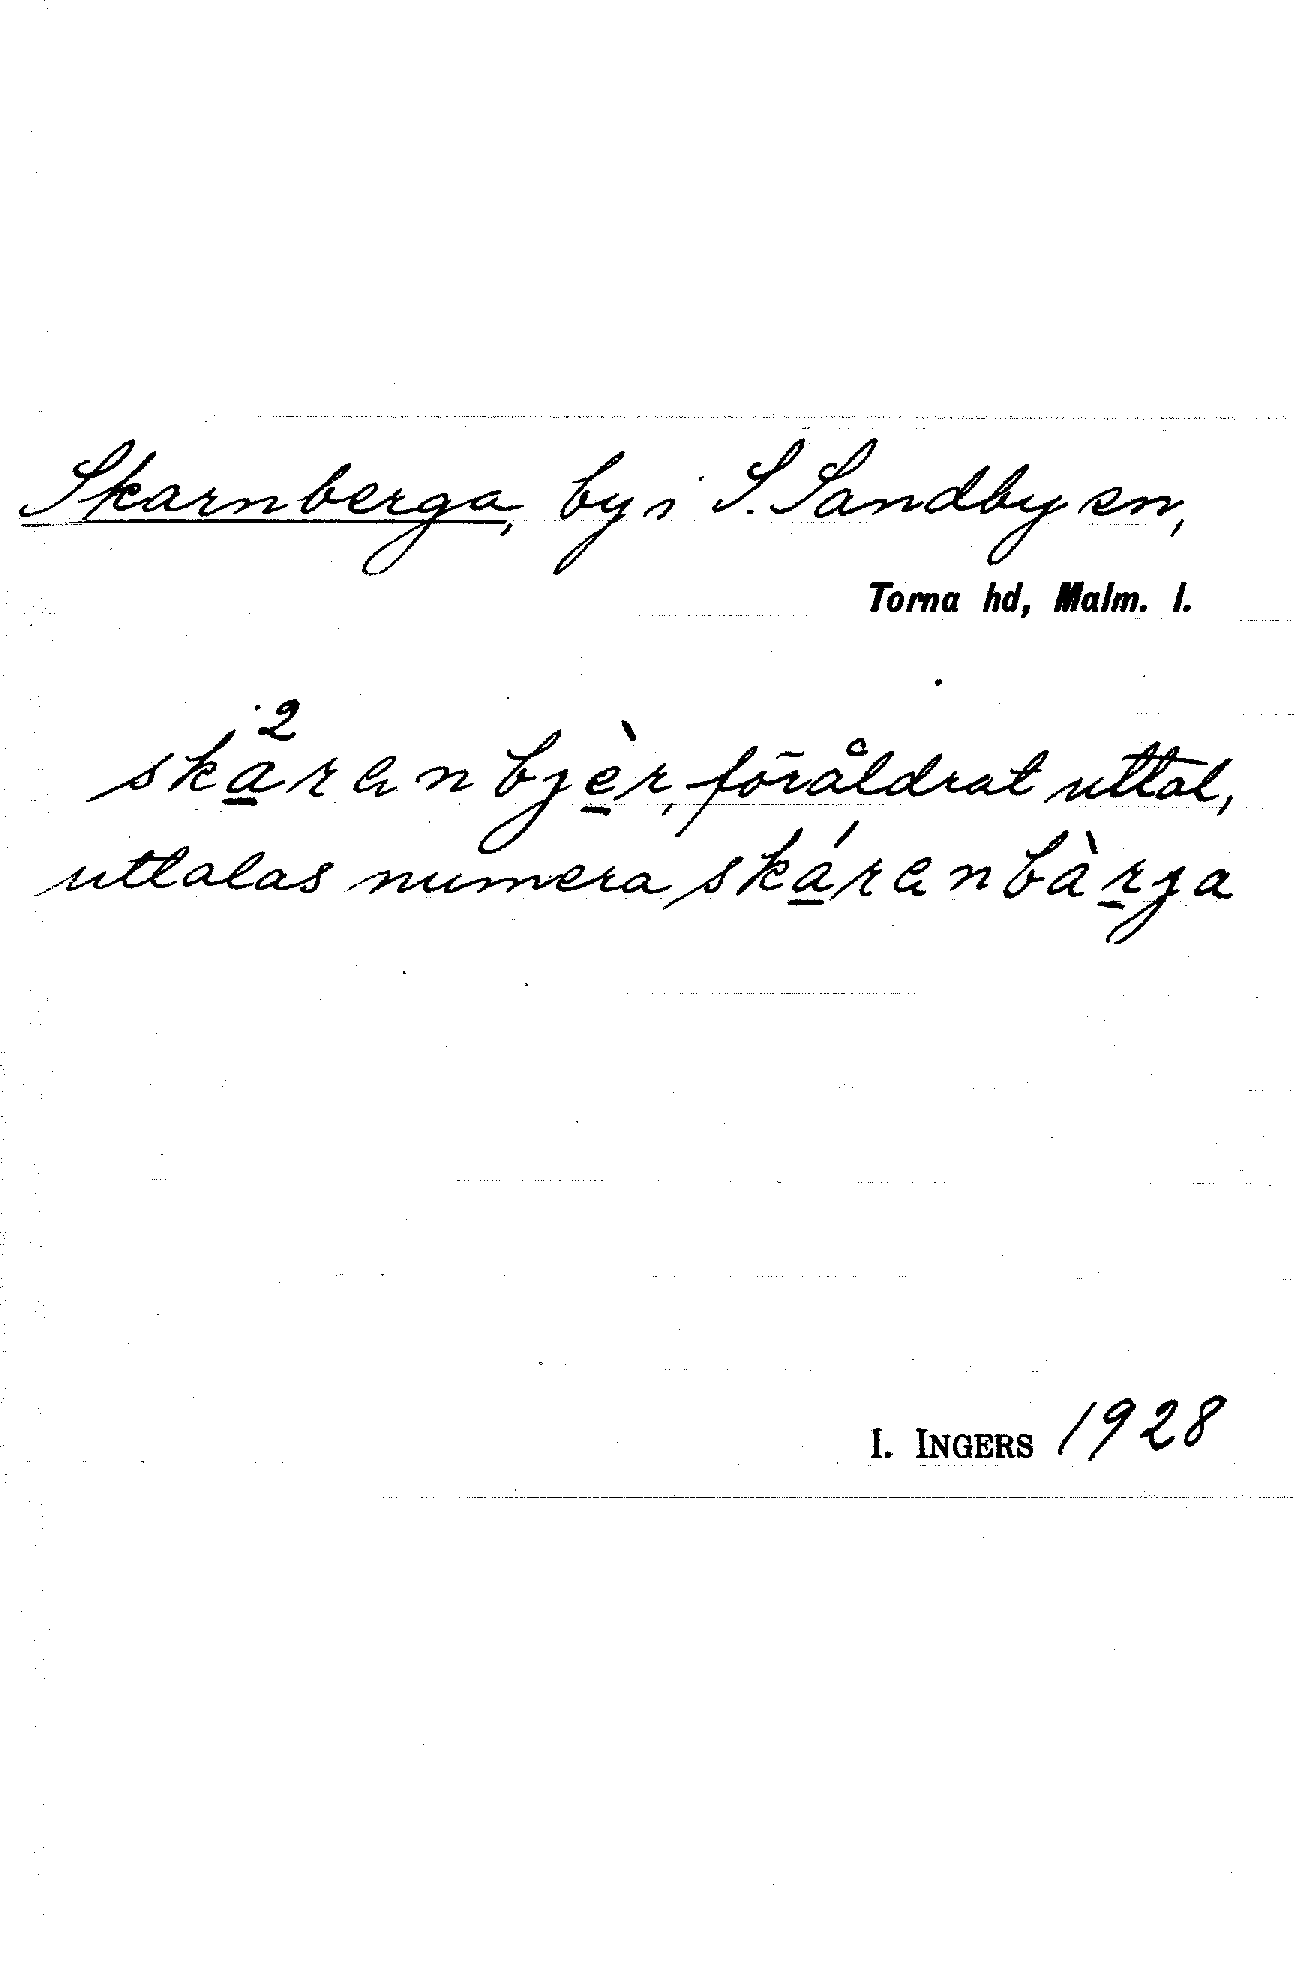 Skarnberga, by i S. Sandby sn,
Torna hd, Malm. l.
ska̲²ranbjè̲r, föråldrat uttal,
uttalas numera ská̲ranbàr̲ja
I. INGERS 1928